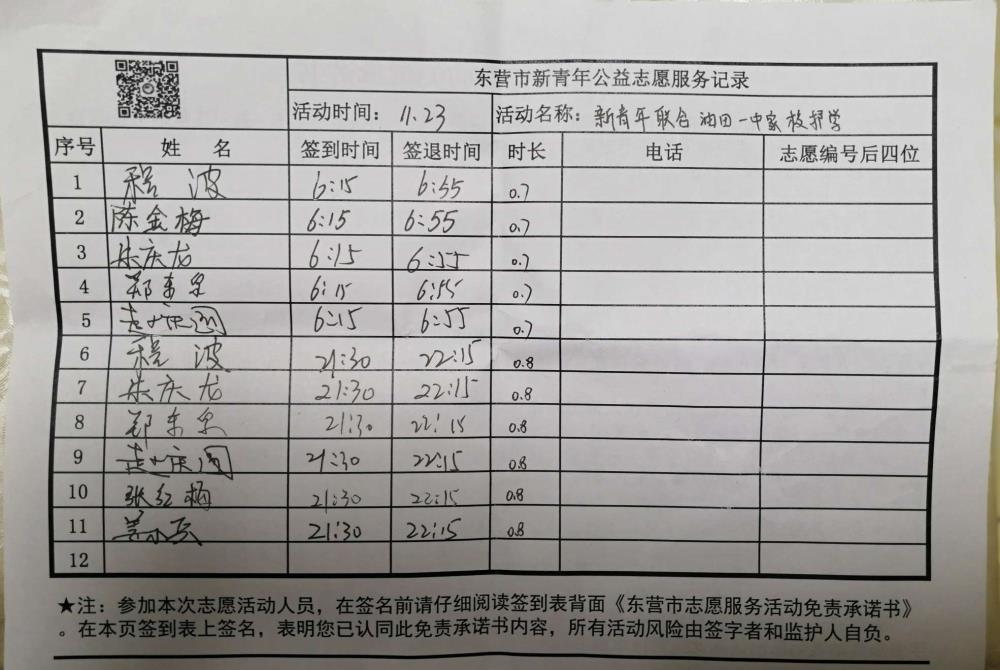 东营市新青年公益志愿服务记录
活动时间: 11.23 活动名称: 新青年联合油田一中家校护学
序号 姓 名 签到时间 签退时间 时长 电话 志愿编号后四位
1 程波 6:15 6:55 0.7
2 陈金梅 6:15 6:55 0.7
3 朱庆龙 6:15 6:55 0.7
4 郑东泉 6:15 6:55 0.7
5 6:15 6:55 0.7
6 程波 21:30 22:15 0.8
7 朱庆龙 21:30 22:15 0.8
8 郑东泉 21:30 22:15 0.8
9 21:30 22:15 0.8
10 张红梅 21:30 22:15 0.8
11 21:30 22:15 0.8
12
★注：参加本次志愿活动人员，在签名前请仔细阅读签到表背面《东营市志愿服务活动免责承诺书》
。在本页签到表上签名，表明您已认同此免责承诺书内容，所有活动风险由签字者和监护人自负。